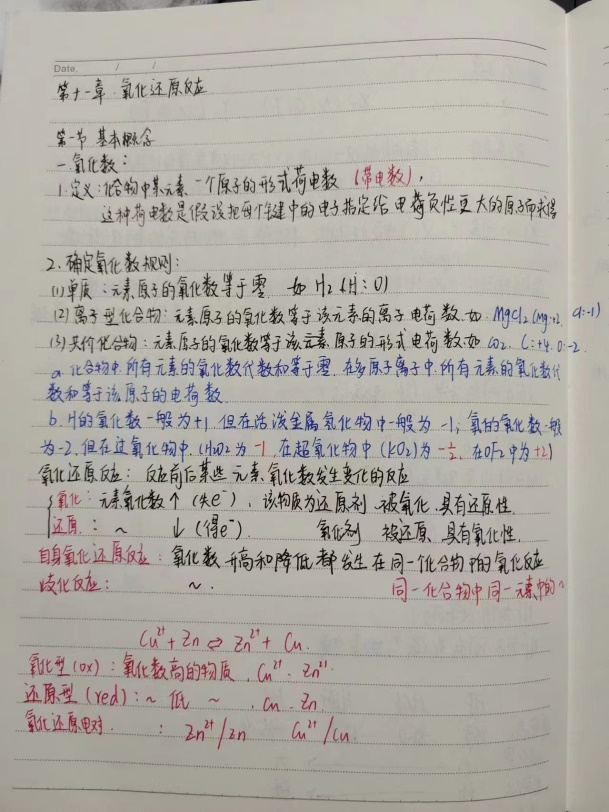 Date. / /
第十一章.氧化还原反应
第一节 基本概念
一.氧化数:
1.定义:化合物中某元素一个原子的形式荷电数 (带电数),
这种荷电数是假设把每个键中的电子指定给电荷负性更大的原子而求得
2.确定氧化数规则:
(1)单质:元素原子的氧化数等于零 如 H2 (H:0)
(2)离子型化合物:元素原子的氧化数等于该元素的离子电荷数.如:MgCl2(Mg:+2. Cl:-1)
(3)共价化合物:元素原子的氧化数等于该元素原子的形式电荷数.如 CO2. C:+4.O:-2
a.化合物中所有元素的氧化数代数和等于零.在多原子离子中.所有元素的氧化数代
数和等于该原子的电荷数.
b.H的氧化数一般为+1.但在活泼金属氢化物中一般为-1;氧的氧化数一般
为-2.但在过氧化物中.(H2O2为-1.在超氧化物中(KO2)为-½.在OF2中为+2)
氧化还原反应:反应前后某些元素氧化数发生变化的反应
氧化:元素氧化数↑(失e⁻).该物质为还原剂.被氧化.具有还原性.
还原:~ ↓(得e⁻). 氧化剂 被还原.具有氧化性.
自身氧化还原反应:氧化数升高和降低都发生在同一个化合物中的氧化反应
歧化反应: ~. 同一化合物中同一元素中的~
Cu²⁺+Zn⇌Zn²⁺+Cu.
氧化型(ox):氧化数高的物质.Cu²⁺.Zn²⁺.
还原型(red):~ 低 ~ .Cu.Zn
氧化还原电对. : Zn²⁺/Zn Cu²⁺/Cu